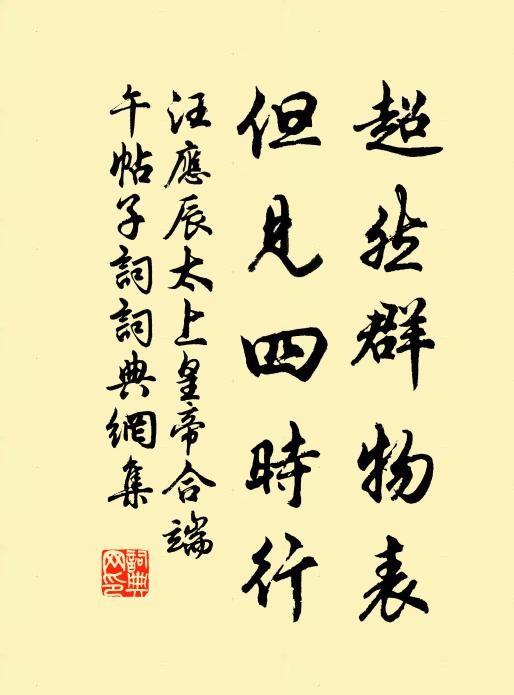 超然群物表
但見四時行
汪應辰太上皇帝合端
午帖子詞詞典網集
詞典
网印